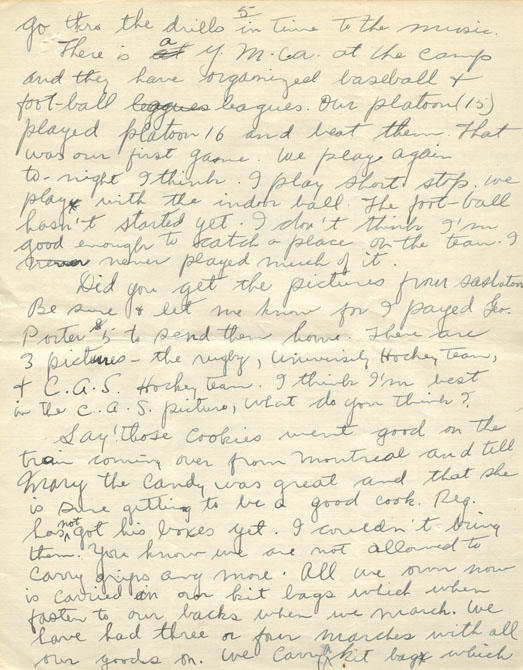 5
go thro the drills in time to the music.
There is a Y.M.C.A. at the camp
and they have organized baseball +
foot-ball leagues leagues. Our platoon (15)
played platoon 16 and beat them. That
was our first game. We play again
to-night I think. I play short stop. We
play with the indoor ball. The foot-ball
hasn't started yet. I don't think I'm
good enough to catch a place on the team. I
never played much of it.
Did you get the pictures from Saskatoon
Be sure & let me know for I payed Geo.
Porter $5 to send them home. There are
3 pictures - the rugby, University Hockey team,
+ C.A.S. Hockey team. I think I'm best
in the C.A.S. picture, what do you think?
Say! those cookies went good on the
train coming over from Montreal and tell
Mary the candy was great and that she
is sure getting to be a good cook. Reg.
has not got his boxes yet. I couldn't bring
them. You know we are not allowed to
carry grips any more. All we own now
is carried in our kit bags which when
fasten to our backs when we march. We
have had three or four marches with all
our goods on. We carry a kit bag which